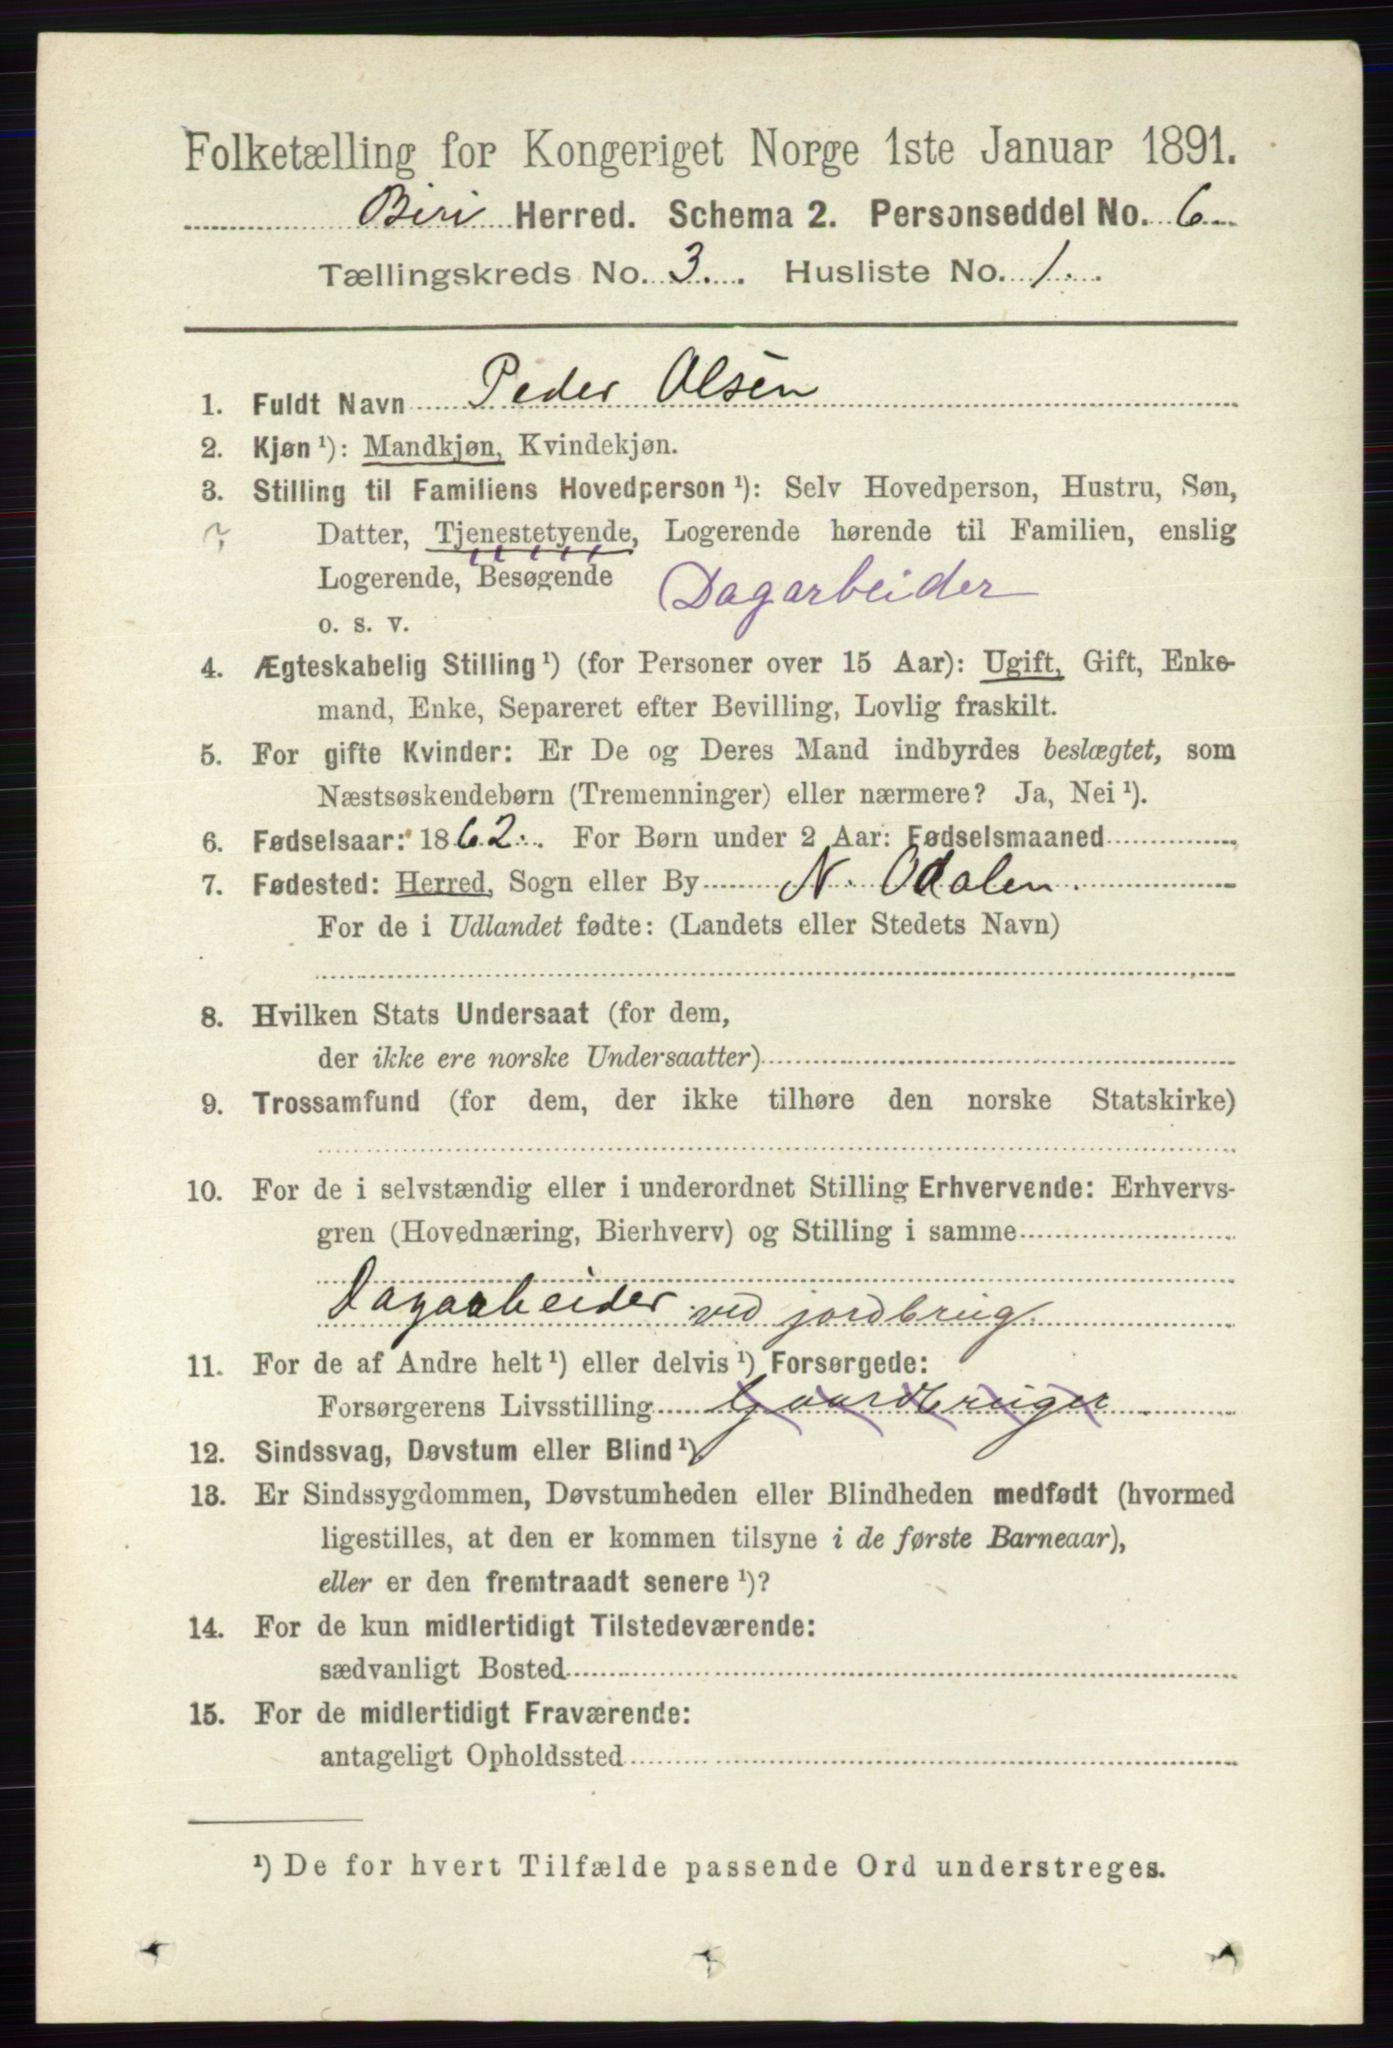 Folketælling for Kongeriget Norge 1ste Januar 1891.
Biri Herred. Schema 2. Personseddel No. 6
Tællingskreds No. 3. Husliste No. 1.
1. Fuldt Navn Peder Olsen
2. Kjøn ¹): Mandkjøn, Kvindekjøn.
3. Stilling til Familiens Hovedperson ¹): Selv Hovedperson, Hustru, Søn,
Datter, Tjenestetyende, Logerende hørende til Familien, enslig
Logerende, Besøgende Dagarbeider
o. s. v.
4. Ægteskabelig Stilling ¹) (for Personer over 15 Aar): Ugift, Gift, Enke-
mand, Enke, Separeret efter Bevilling, Lovlig fraskilt.
5. For gifte Kvinder: Er De og Deres Mand indbyrdes beslægtet, som
Næstsøskendebørn (Tremenninger) eller nærmere? Ja, Nei ¹).
6. Fødselsaar: 1862. For Børn under 2 Aar: Fødselsmaaned
7. Fødested: Herred, Sogn eller By N. Odalen.
For de i Udlandet fødte: (Landets eller Stedets Navn)
8. Hvilken Stats Undersaat (for dem,
der ikke ere norske Undersaatter)
9. Trossamfund (for dem, der ikke tilhøre den norske Statskirke)
10. For de i selvstændig eller i underordnet Stilling Erhvervende: Erhvervs-
gren (Hovednæring, Bierhverv) og Stilling i samme
Dagarbeider ved jordbrug.
11. For de af Andre helt ¹) eller delvis ¹) Forsørgede:
Forsørgerens Livsstilling Gaardbruger
12. Sindssvag, Døvstum eller Blind ¹)
13. Er Sindssygdommen, Døvstumheden eller Blindheden medfødt (hvormed
ligestilles, at den er kommen tilsyne i de første Barneaar),
eller er den fremtraadt senere ¹)?
14. For de kun midlertidigt Tilstedeværende:
sædvanligt Bosted
15. For de midlertidigt Fraværende:
antageligt Opholdssted
¹) De for hvert Tilfælde passende Ord understreges.